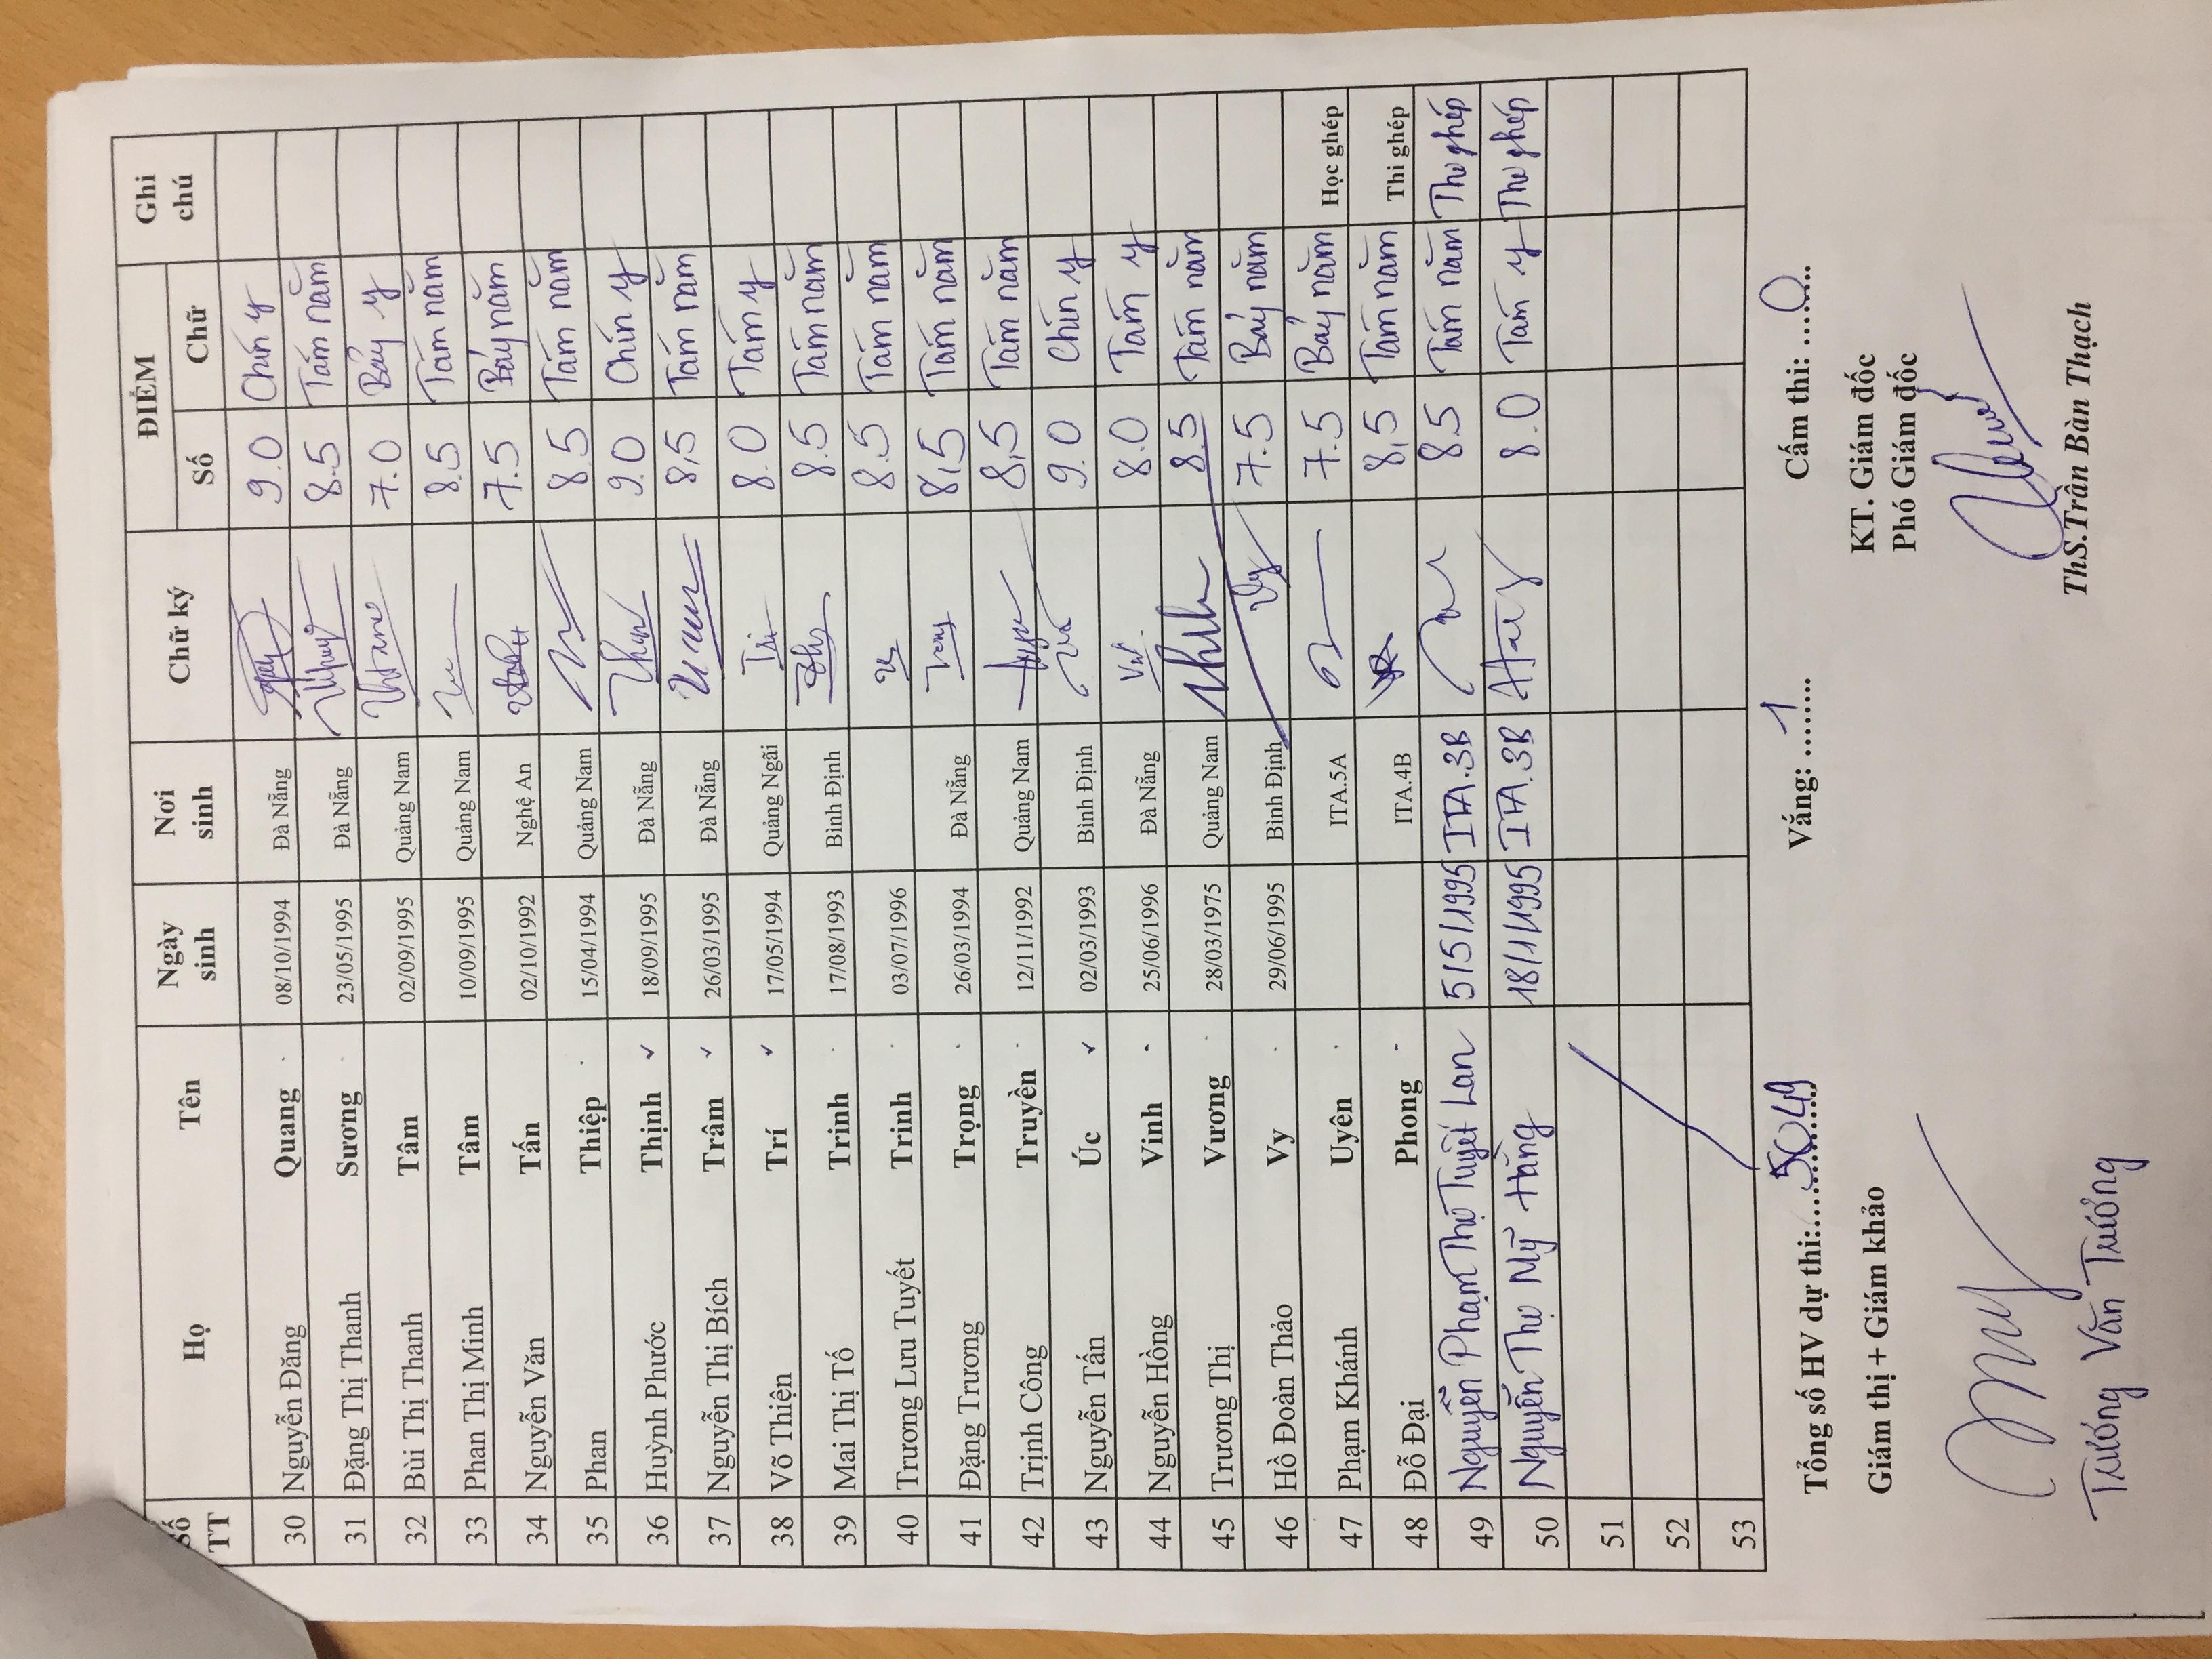 Số TT Họ Tên Ngày sinh Nơi sinh Chữ ký ĐIỂM Ghi chú
Số Chữ
30 Nguyễn Đăng Quang 08/10/1994 Đà Nẵng 9.0 Chín y
31 Đặng Thị Thanh Sương 23/05/1995 Đà Nẵng 8.5 Tám năm
32 Bùi Thị Thanh Tâm 02/09/1995 Quảng Nam 7.0 Bảy y
33 Phan Thị Minh Tâm 10/09/1995 Quảng Nam 8.5 Tám năm
34 Nguyễn Văn Tấn 02/10/1992 Nghệ An 7.5 Bảy năm
35 Phan Thiệp 15/04/1994 Quảng Nam 8.5 Tám năm
36 Huỳnh Phước Thịnh ✓ 18/09/1995 Đà Nẵng 9.0 Chín y
37 Nguyễn Thị Bích Trâm ✓ 26/03/1995 Đà Nẵng 8,5 Tám năm
38 Võ Thiện Trí ✓ 17/05/1994 Quảng Ngãi Trí 8.0 Tám y
39 Mai Thị Tố Trinh 17/08/1993 Bình Định 8.5 Tám năm
40 Trương Lưu Tuyết Trinh 03/07/1996 8.5 Tám năm
41 Đặng Trương Trọng 26/03/1994 Đà Nẵng Trọng 8,5 Tám năm
42 Trịnh Công Truyền 12/11/1992 Quảng Nam 8,5 Tám năm
43 Nguyễn Tấn Úc ✓ 02/03/1993 Bình Định 9.0 Chín y
44 Nguyễn Hồng Vinh 25/06/1996 Đà Nẵng 8.0 Tám y
45 Trương Thị Vương 28/03/1975 Quảng Nam 8.5 Tám năm
46 Hồ Đoàn Thảo Vy 29/06/1995 Bình Định Vy 7.5 Bảy năm
47 Phạm Khánh Uyên ITA.5A 7.5 Bảy năm Học ghép
48 Đỗ Đại Phong ITA.4B 8,5 Tám năm Thi ghép
49 Nguyễn Phạm Thị Tuyết Lan 5/5/1995 ITA.3B 8.5 Tám năm Thi ghép
50 Nguyễn Thị Mỹ Hằng 18/1/1995 ITA.3B 8.0 Tám y Thi ghép
51
52
53
Tổng số HV dự thi:....50 49.... Vắng: ....1.... Cấm thi: ....0....
Giám thị + Giám khảo KT. Giám đốc
Phó Giám đốc
Trương Văn Trương ThS.Trần Bàn Thạch